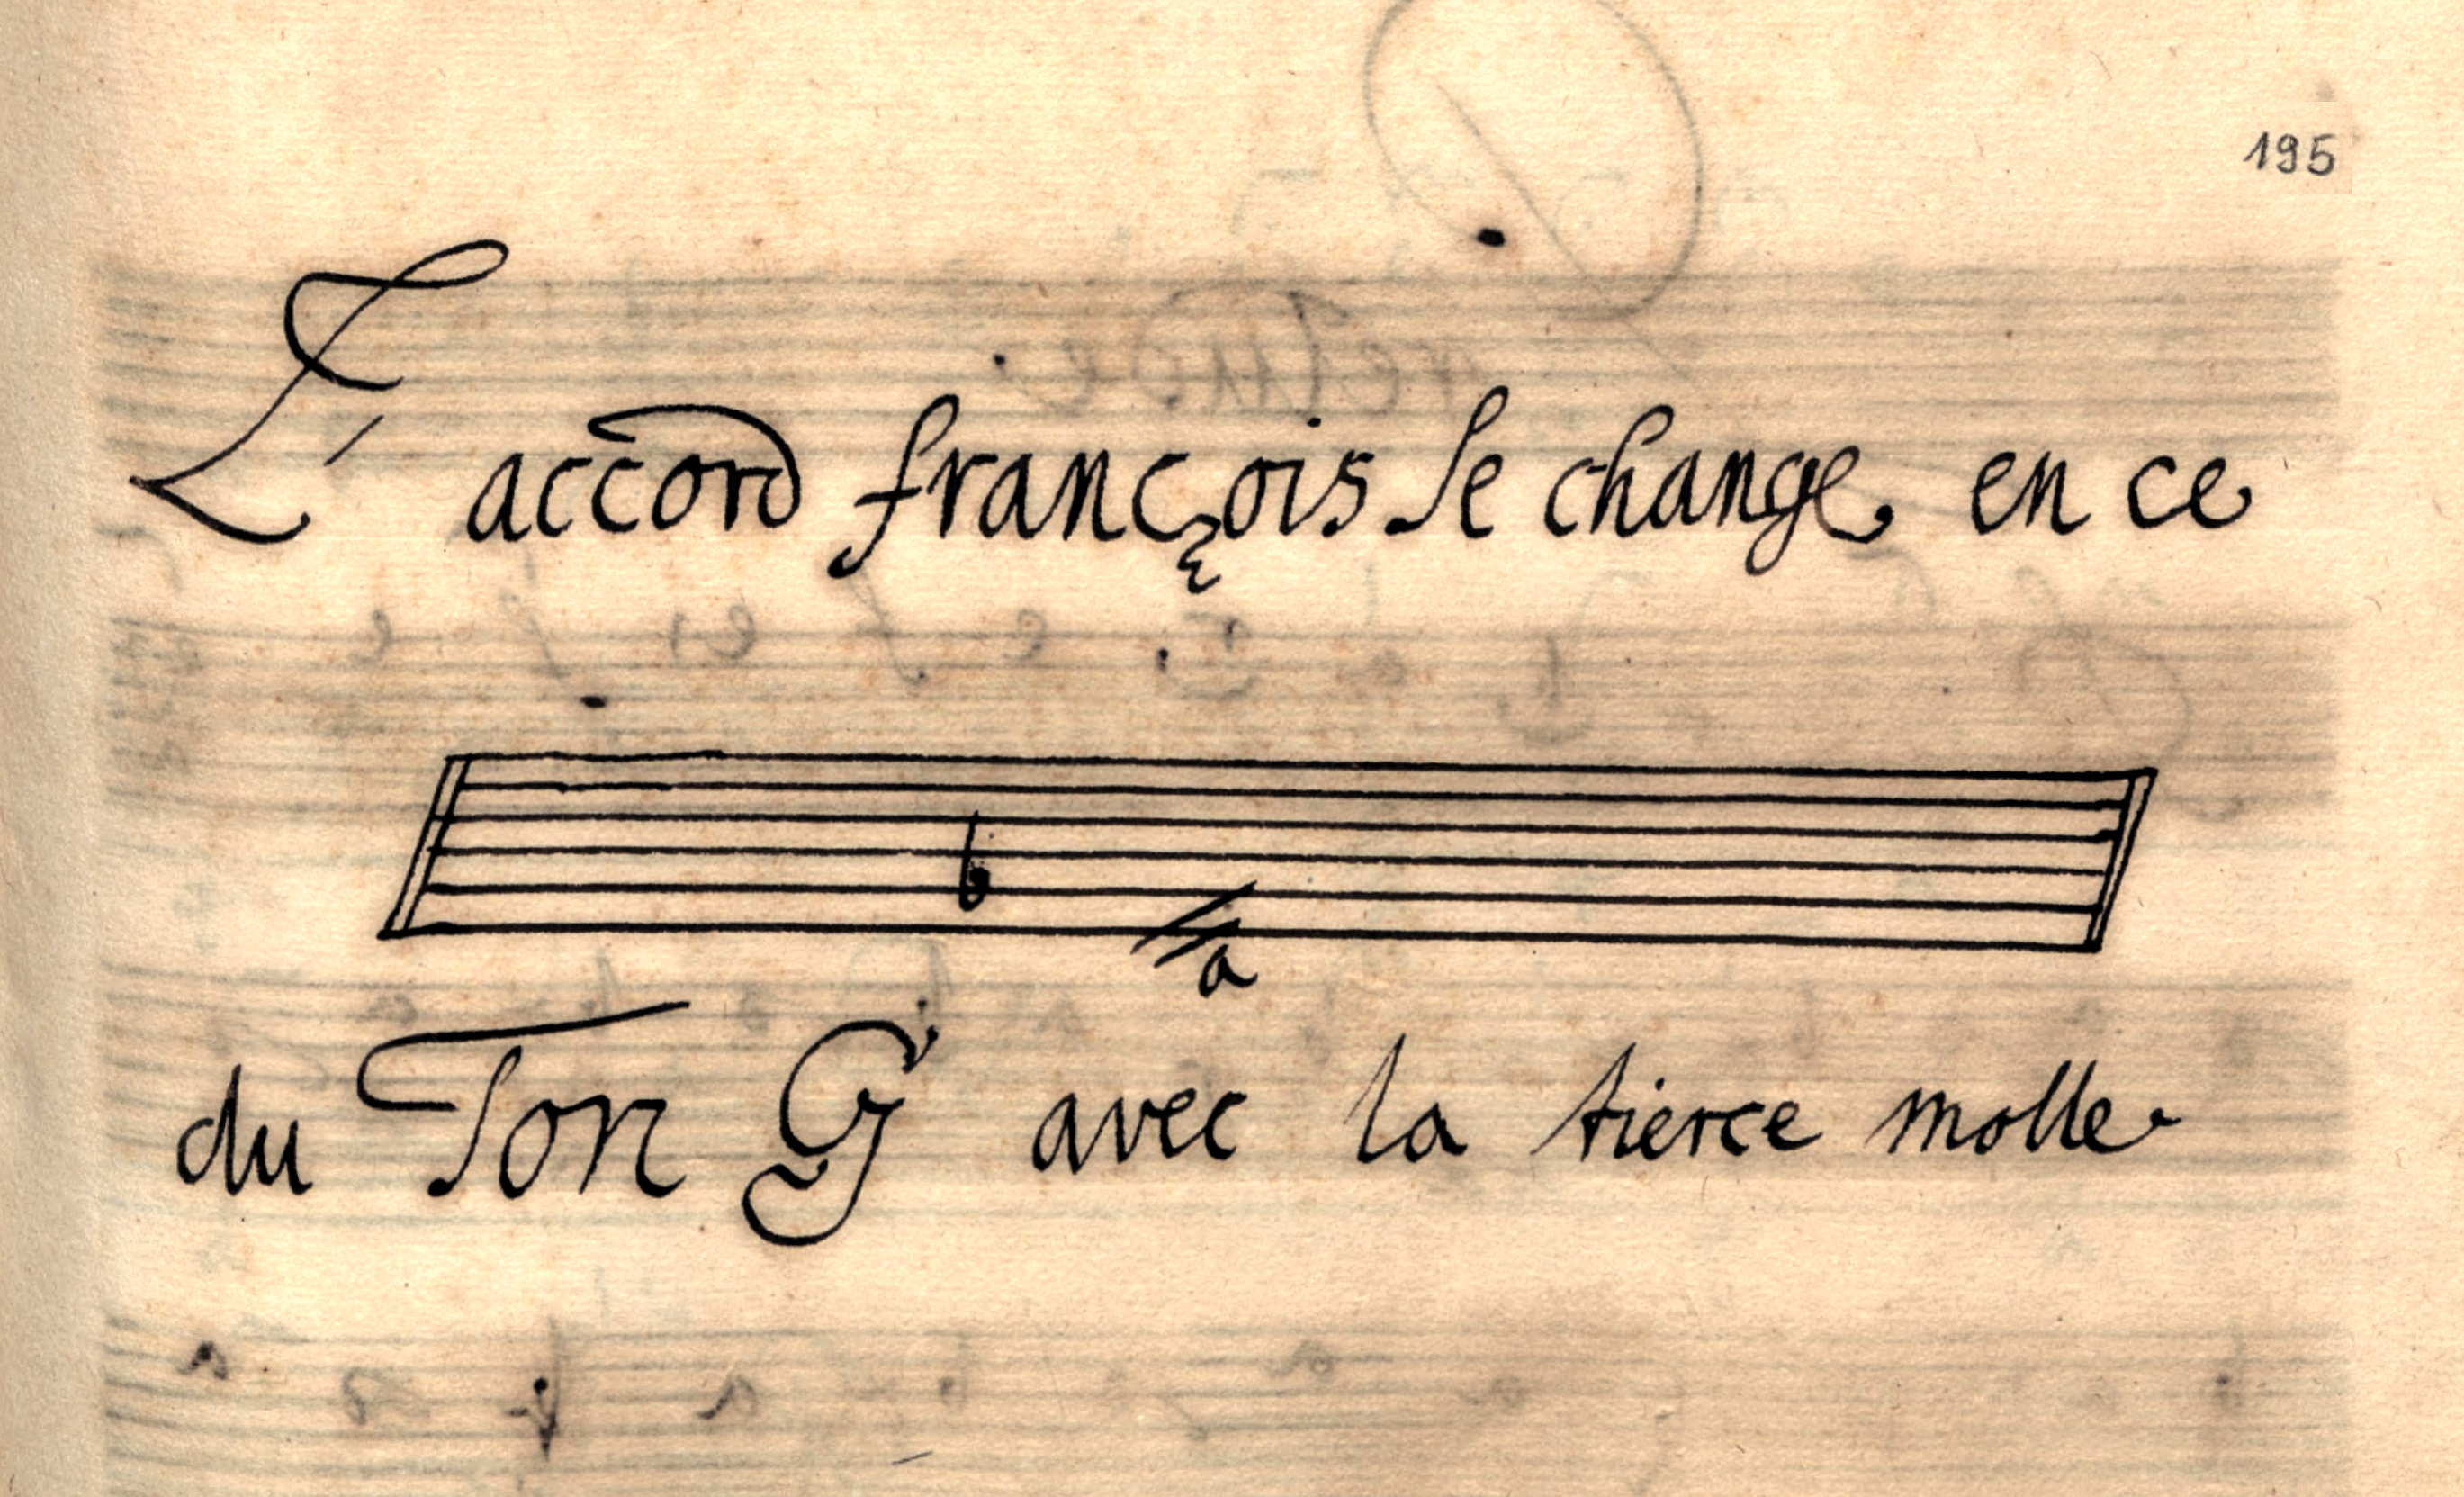 195
L'accord françois se change en ce
b
//a
du Ton G avec la tierce molle